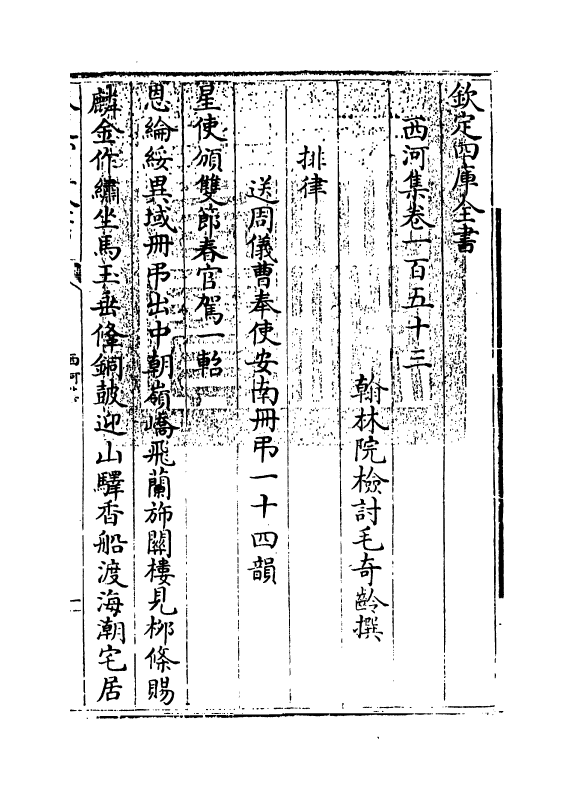 欽定四庫全書
西河集卷一百五十三
翰林院檢討毛奇齡撰
排律
送周儀曹奉使安南冊弔一十四韻
星使頒雙節春官駕一軺
恩綸綏異域冊弔出中朝嶺嶠飛蘭斾闗樓見桺條賜
麟金作繡坐馬玉垂絛銅鼓迎山驛香船渡海潮宅居
西河集
一